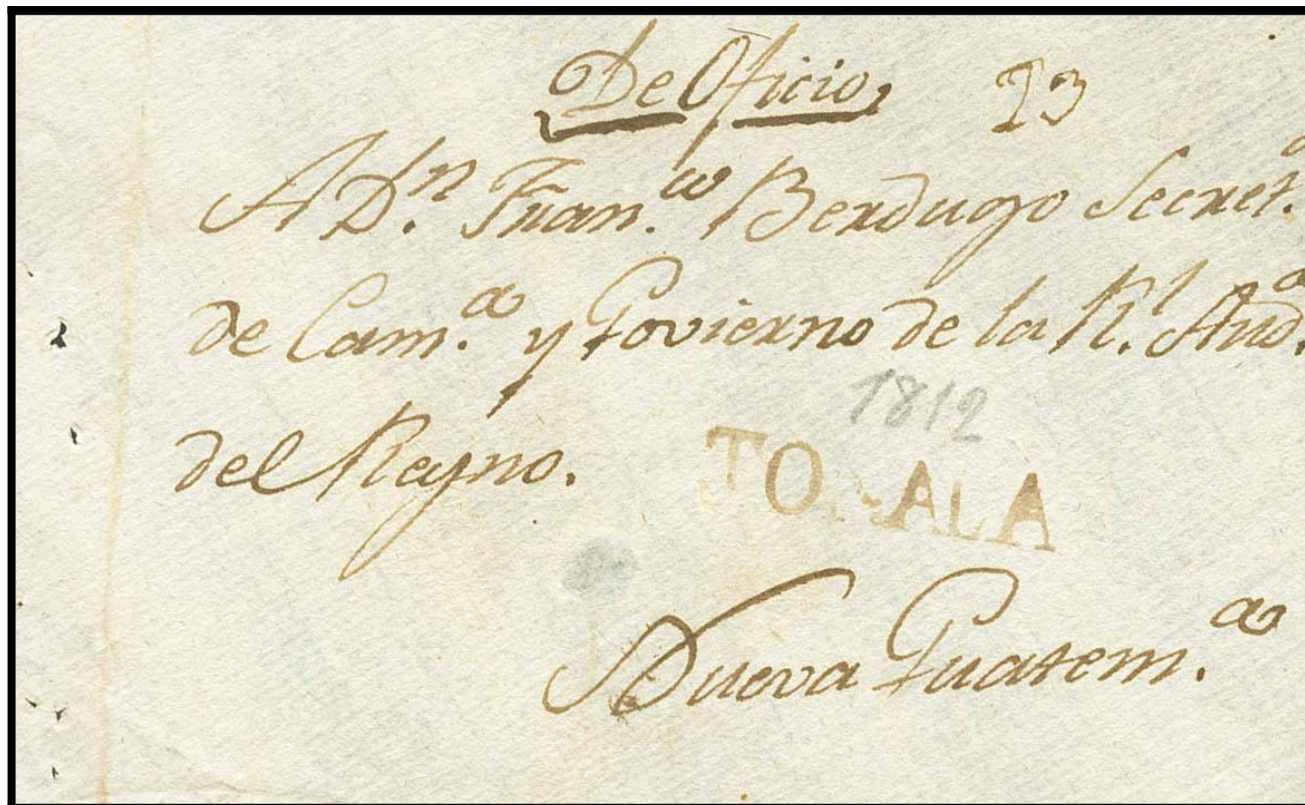 De Oficio 23
A D.n Fran.co Berdugo Secret.
de Cam.a y Govierno de la R.l Aud.a
1812
del Reyno. TONALA
Nueva Guatem.a